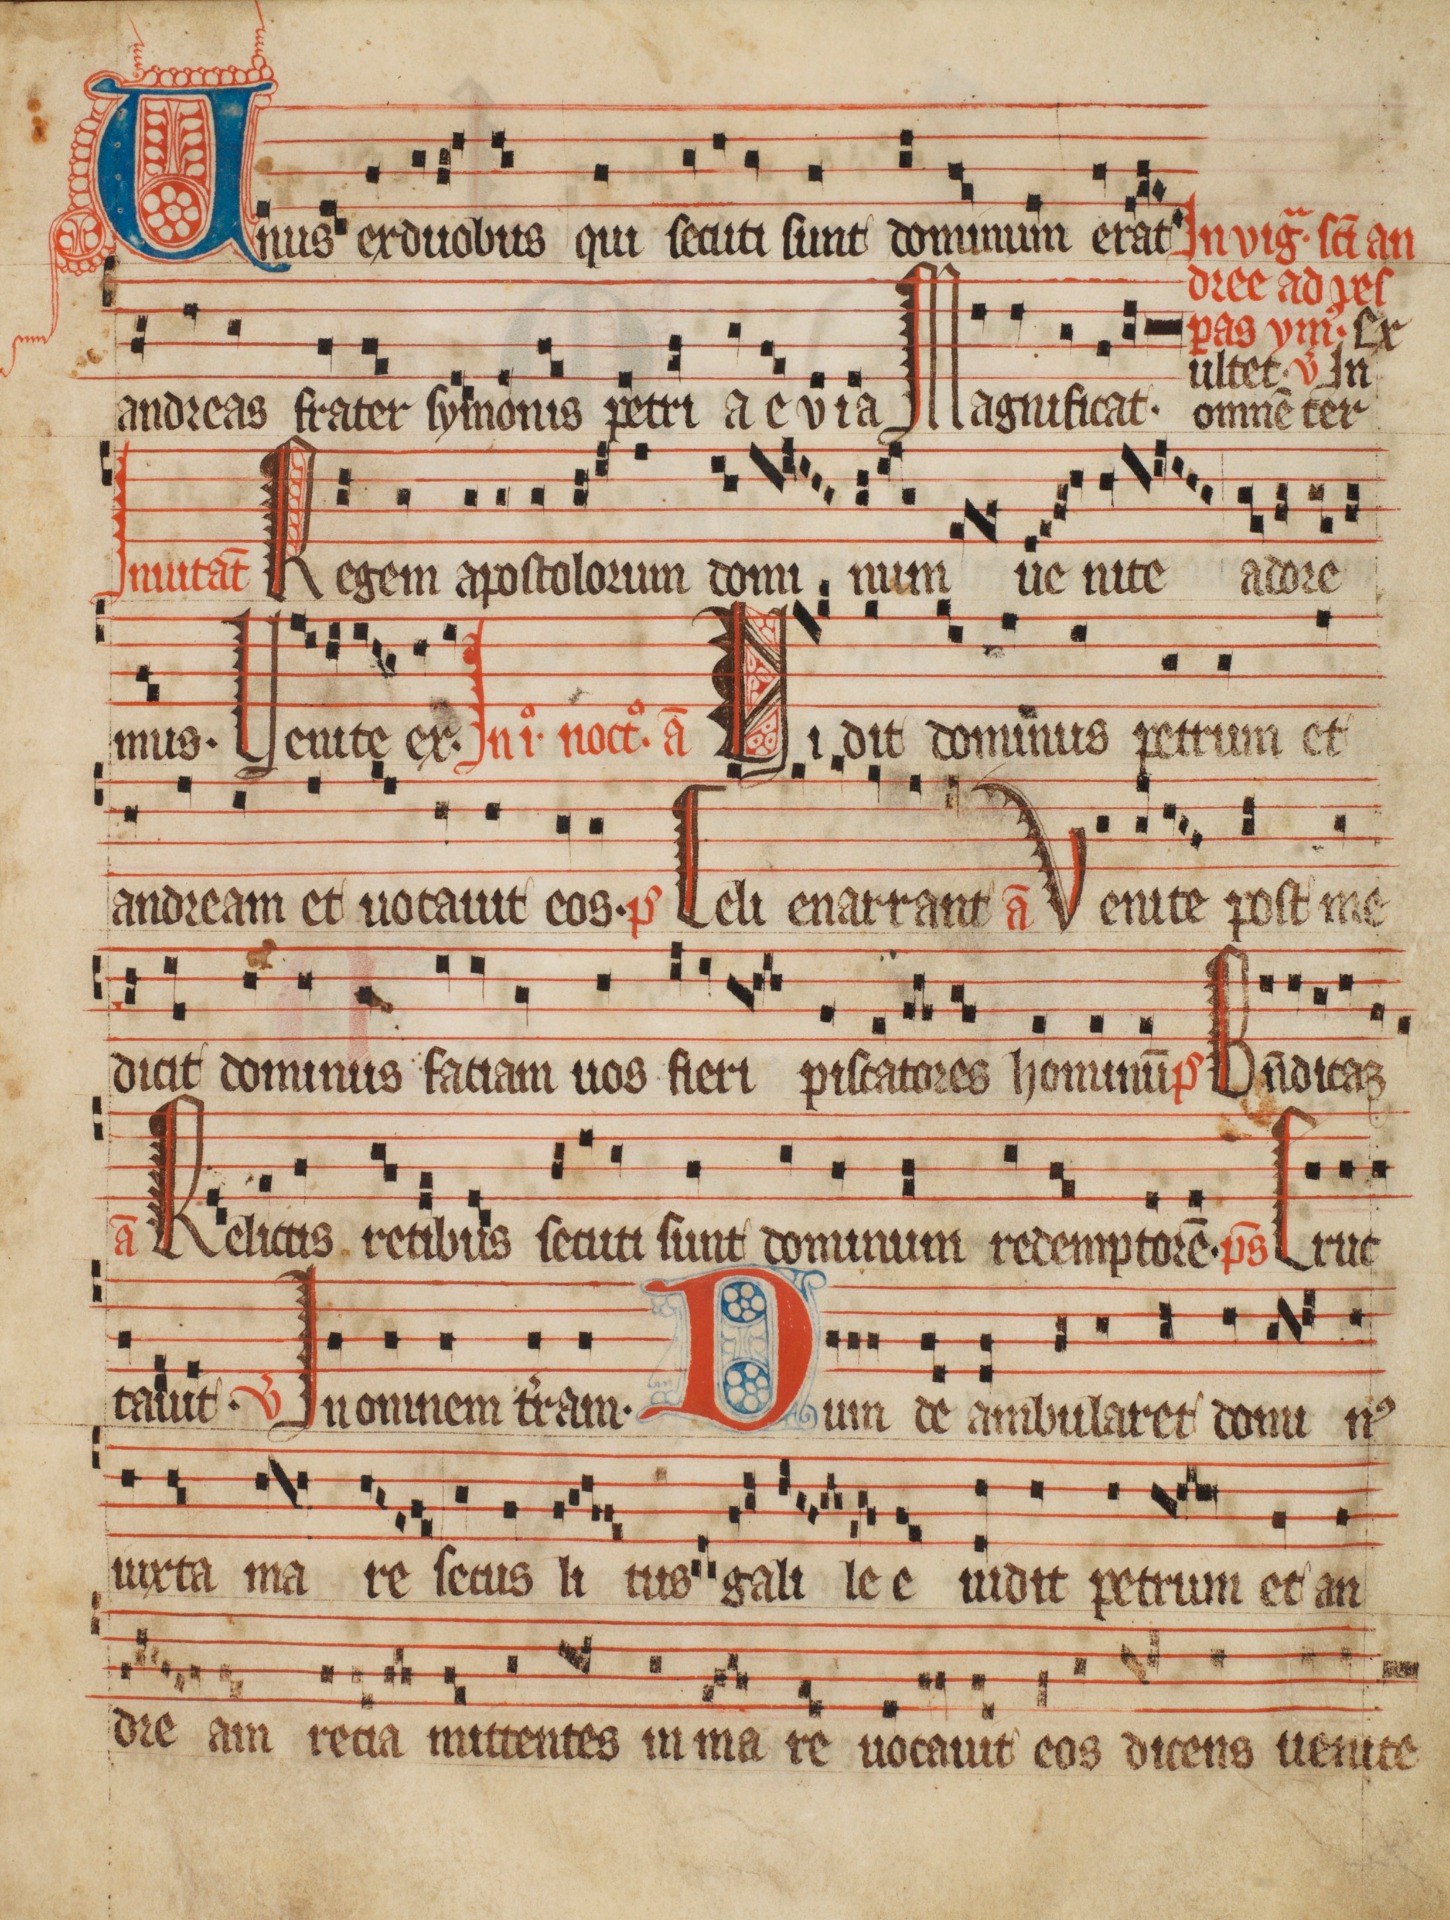 Unus ex duobus qui secuti sunt dominum erat In vig̃. sc̄i an
dree ad ves
pas ymº. Ex
ultet. v̄ In
omnē ter
andreas frater symonis petri a e v i a Magnificat.
Inuitat̄ Regem apostolorum domi num ue nite adore
mus. Venite ex. In iº. noctº. ā Vi dit dominus petrum et
andream et uocauit eos. ps Celi enarrant ā Venite post me
dicit dominus faciam uos fieri piscatores hominū ps Bn̄dicaꝫ
ā Relictis retibus secuti sunt dominum redemptorē. ps̄ Eruc
tauit. v̄ In omnem t̄ram. Dum de ambularet domi nꝰ
iuxta ma re secus li tus gali le e uidit petrum et an
dre am recia mittentes in ma re uocauit eos dicens uenite